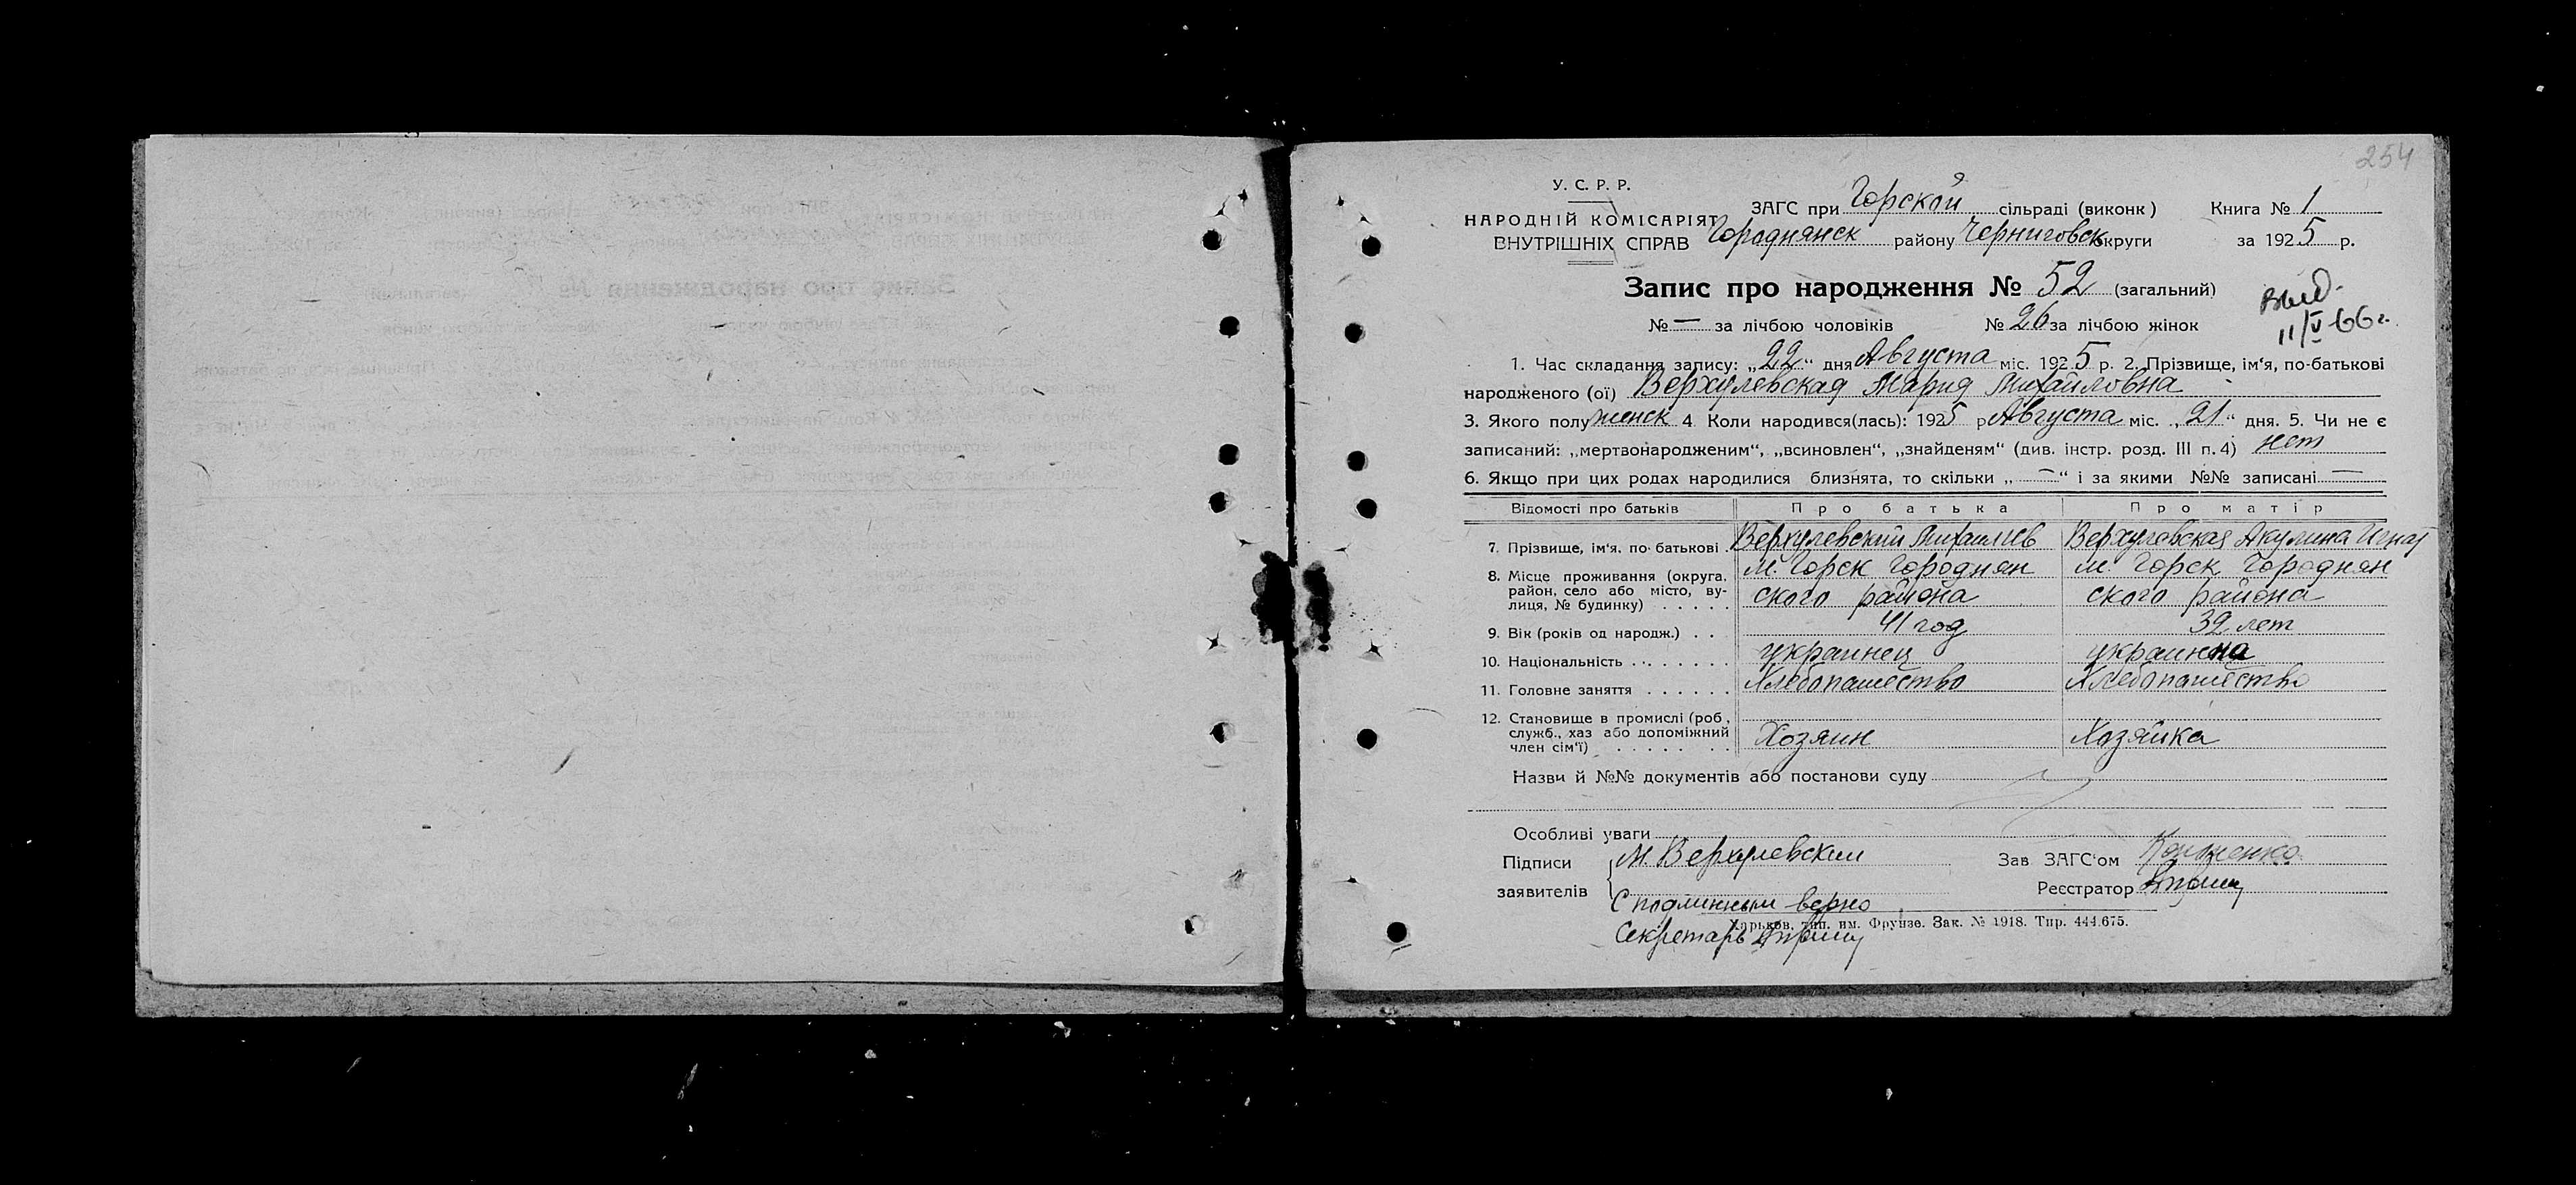 254
У. С. Р. Р.
НАРОДНІЙ КОМІСАРІЯТ
ВНУТРІШНІХ СПРАВ
ЗАГС при Горской сільраді (виконк) Книга № 1
Городнянск району Черниговск округи за 1925 р.
Запис про народження № 52 (загальний)
№ — за лічбою чоловіків № 26 за лічбою жінок
Выд.
11/V-66 г.
1. Час складання запису: „22“ дня Августа міс. 1925 р. 2. Прізвище, ім‘я, по-батькові
народженого (ої) Верхулевская Мария Михайловна
3. Якого полу женск 4. Коли народився(лась): 1925 р Августа міс. „21“ дня. 5. Чи не є
записаний: „мертвонародженим“, „всиновлен“, „знайденям“ (див. інстр. розд. III п. 4) нет
6. Якщо при цих родах народилися близнята, то скільки „—“ і за якими №№ записані —
Відомості про батьків Про батька Про матір
7. Прізвище, ім‘я, по-батькові Верхулевский Михаил Верхулевская Акулина Игнат
8. Місце проживання (округа, район, село або місто, ву-лиця, № будинку) м. Горск Городнян м. Горск Городнян
ского района ского района
9. Вік (років од народж.) 41 год 32 лет
10. Національність украинец украинка
11. Головне заняття Хлебопашество Хлебопашество
12. Становище в промислі (роб., служб., хаз або допоміжний член сім‘ї) Хозяин Хозяйка
Назви й №№ документів або постанови суду
Особливі уваги
Підписи М. Верхулевский Зав ЗАГС‘ом
заявителів Реєстратор
С подлинным верно
Харьков, тип. им. Фрунзе. Зак. № 1918. Тир. 444.675.
Секретарь